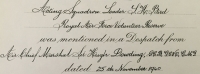 Acting Squadron Leader S.H. 
Royal Air Force Volunteer Reserve
was mentioned in a Despatch from
Air Chief Marshal Sir Hugh Dowding, G.C.B. G.C.V.O. C.M.G.
dated 25th November 1940